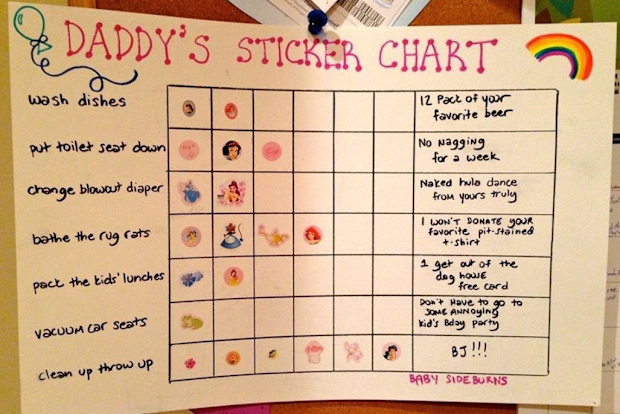 DADDY'S STICKER CHART
wash dishes
12 Pack of your
favorite beer
put toilet seat down
No Nagging
for a week
change blowout diaper
Naked hula dance
from yours truly
bathe the rug rats
I WON'T DONATE YOUR
favorite pit-stained
t-shirt
pack the kids' lunches
1 get out of the
dog house
free card
vacuum car seats
DON'T HAVE TO GO TO
SOME ANNOYING
kid's Bday party
clean up throw up
BJ!!!
BABY SIDEBURNS